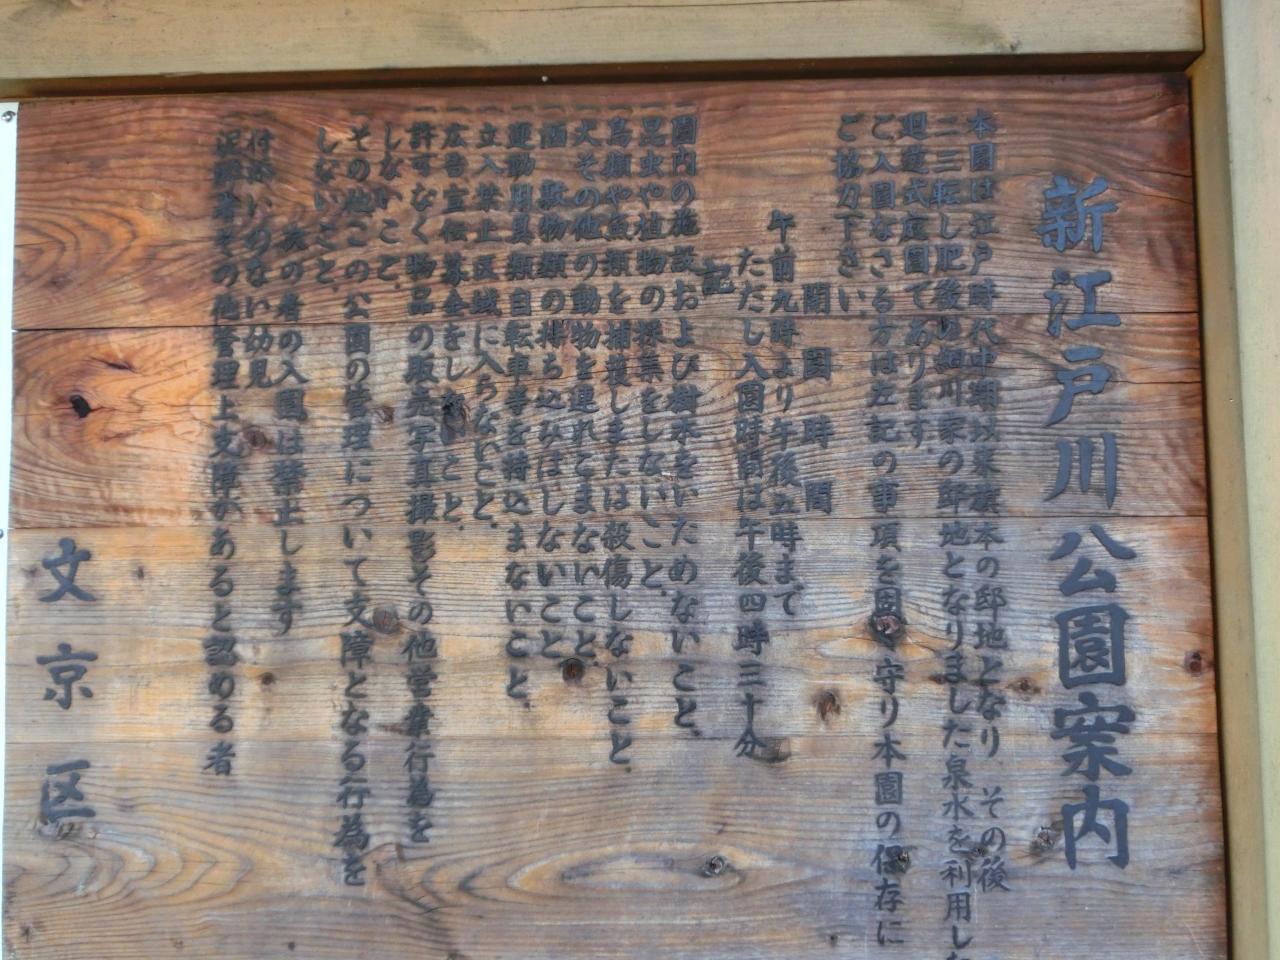 新江戸川公園案内
本園は江戸時代中期以来旗本の邸地となり その後
二三転し肥後の細川家の邸地となりました泉水を利用した
廻遊式庭園であります。
ご入園なさる方は左記の事項を固く守り本園の保存に
ご協力下さい。
開園時間
午前九時より午後五時まで
ただし入園時間は午後四時三十分
記
一園内の施設および樹木をいためないこと。
一昆虫や植物の採集をしないこと。
一鳥類や魚類を捕獲しまたは殺傷しないこと。
一犬その他の動物を連れこまないこと。
一酒 敷物類の持ち込みはしないこと
一運動用具類自転車等を持込まないこと。
一立入禁止区域に入らないこと。
一広告宣伝募金をしないこと。
一許可なく物品の販売写真撮影その他営業行為を
しないこと。
一その他この公園の管理について支障となる行為を
しないこと。
次の者の入園は禁止します
付添いのない幼児
泥酔者その他管理上支障があると認める者
文京区